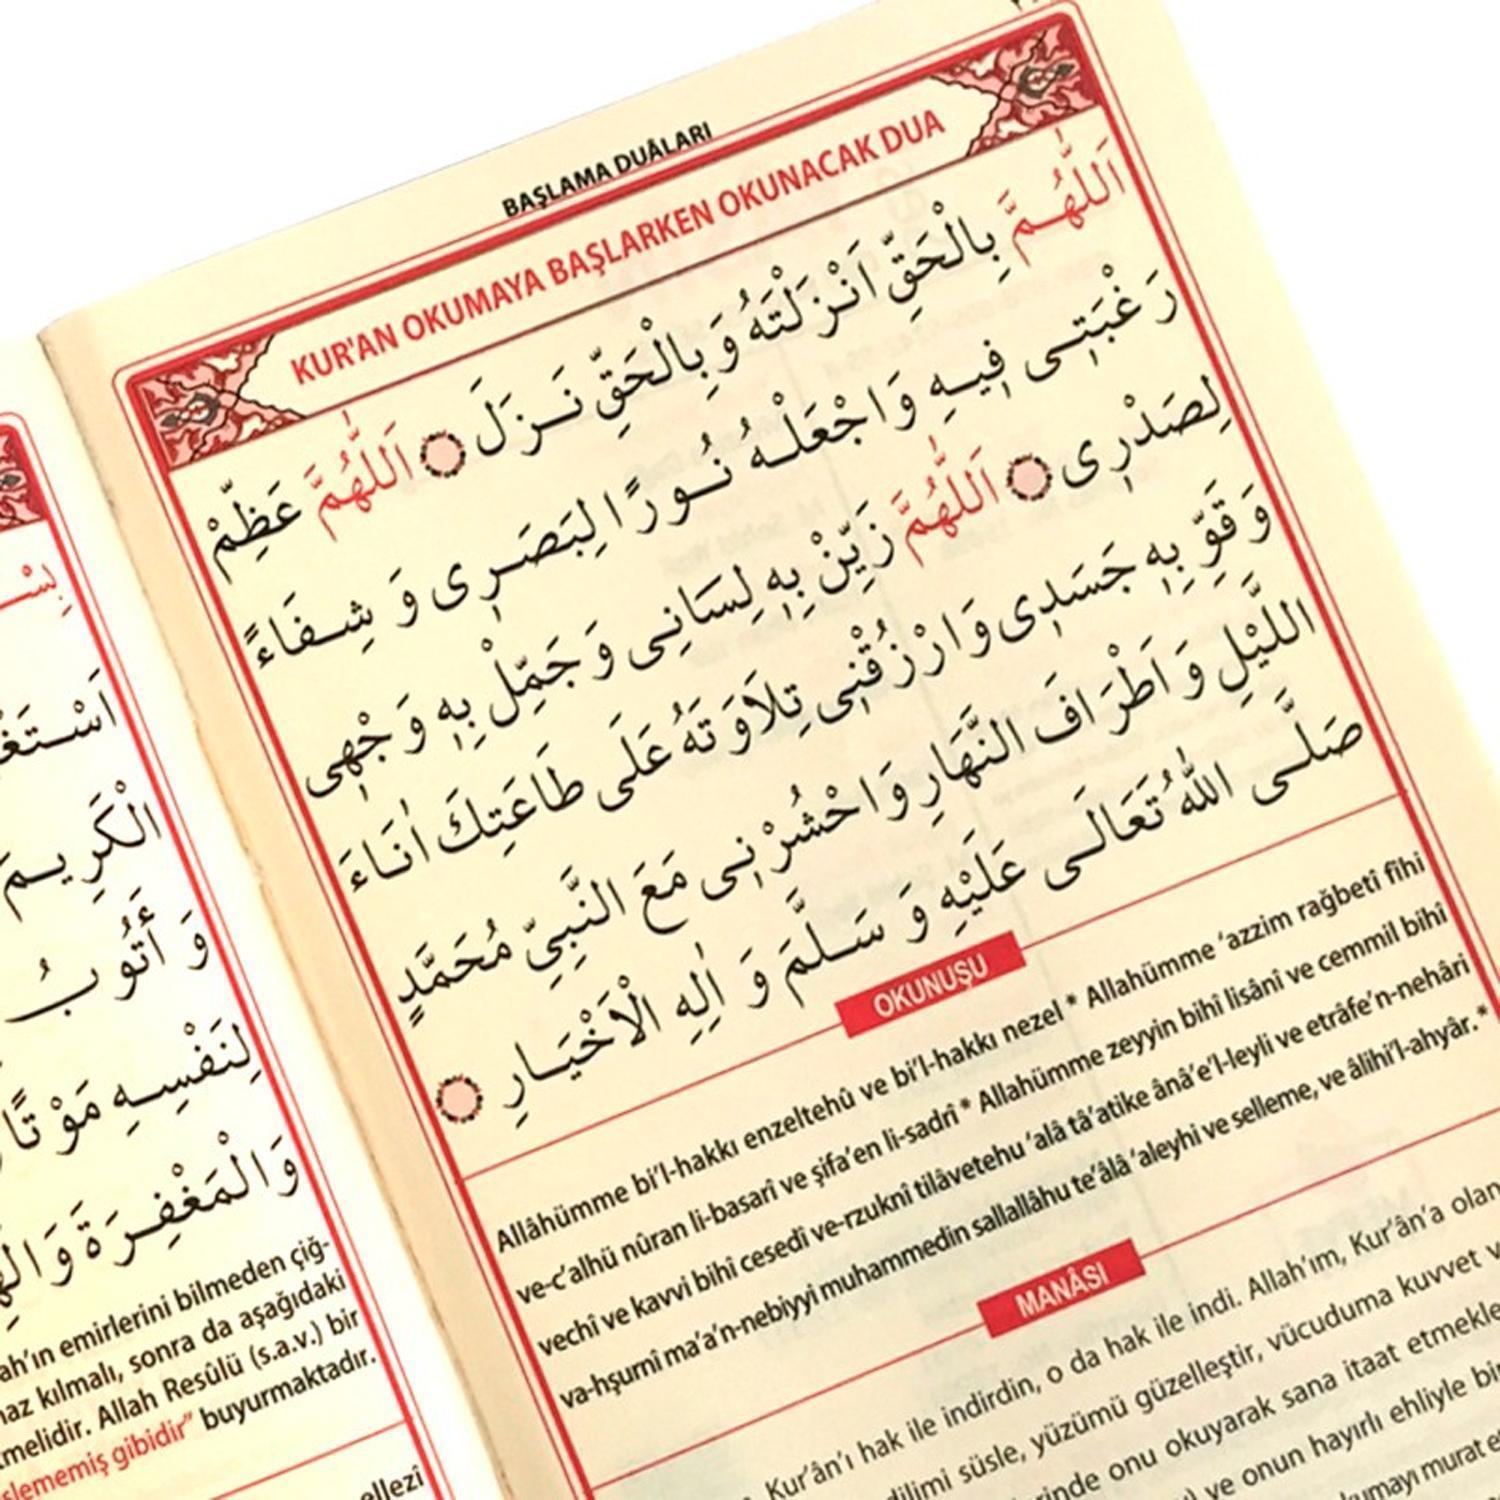 BAŞLAMA DUÂLARI
KUR'AN OKUMAYA BAŞLARKEN OKUNACAK DUA
اَللّٰهُمَّ بِالْحَقِّ اَنْزَلْتَهُ وَبِالْحَقِّ نَزَلَ اَللّٰهُمَّ عَظِّمْ
رَغْبَتِى فِيهِ وَاجْعَلْهُ نُورًا لِبَصَرِى وَ شِفَاءً
لِصَدْرِى اَللّٰهُمَّ زَيِّنْ بِهِ لِسَانِى وَجَمِّلْ بِهِ وَجْهِى
وَقَوِّ بِهِ جَسَدِى وَارْزُقْنِى تِلَاوَتَهُ عَلَى طَاعَتِكَ اٰنَاءَ
اللَّيْلِ وَاَطْرَافَ النَّهَارِ وَاحْشُرْنِى مَعَ النَّبِيِّ مُحَمَّدٍ
صَلَّى اللّٰهُ تَعَالَى عَلَيْهِ وَ سَلَّمَ وَ اٰلِهِ الْاَخْيَارِ
OKUNUŞU
Allâhümme bi'l-hakkı enzeltehû ve bi'l-hakkı nezel * Allahümme 'azzim rağbetî fîhi
ve-c'alhü nûran li-basarî ve şifa'en li-sadrî * Allahümme zeyyin bihî lisânî ve cemmil bihî
vechî ve kavvi bihî cesedî ve-rzuknî tilâvetehu 'alâ tâ'atike ânâ'e'l-leyli ve etrâfe'n-nehâri
va-hşurnî ma'a'n-nebiyyi muhammedin sallallâhu te'âlâ 'aleyhi ve selleme, ve âlihi'l-ahyâr. *
MANÂSI
Kur'ân'ı hak ile indirdin, o da hak ile indi. Allah'ım, Kur'ân'a olan
dilimi süsle, yüzümü güzelleştir, vücuduma kuvvet v
rinde onu okuyarak sana itaat etmekle
ve onun hayırlı ehliyle bir
kumayı murat et
اَسْتَغْ
الْكَرِيمَ
وَ أَتُوبُ
لِنَفْسِهِ مَوْتًا
وَالْمَغْفِرَةَ
ah'ın emirlerini bilmeden çiğ-
naz kılmalı, sonra da aşağıdaki
tmelidir. Allah Resûlü (s.a.v.) bir
şlememiş gibidir" buyurmaktadır.
ellezî